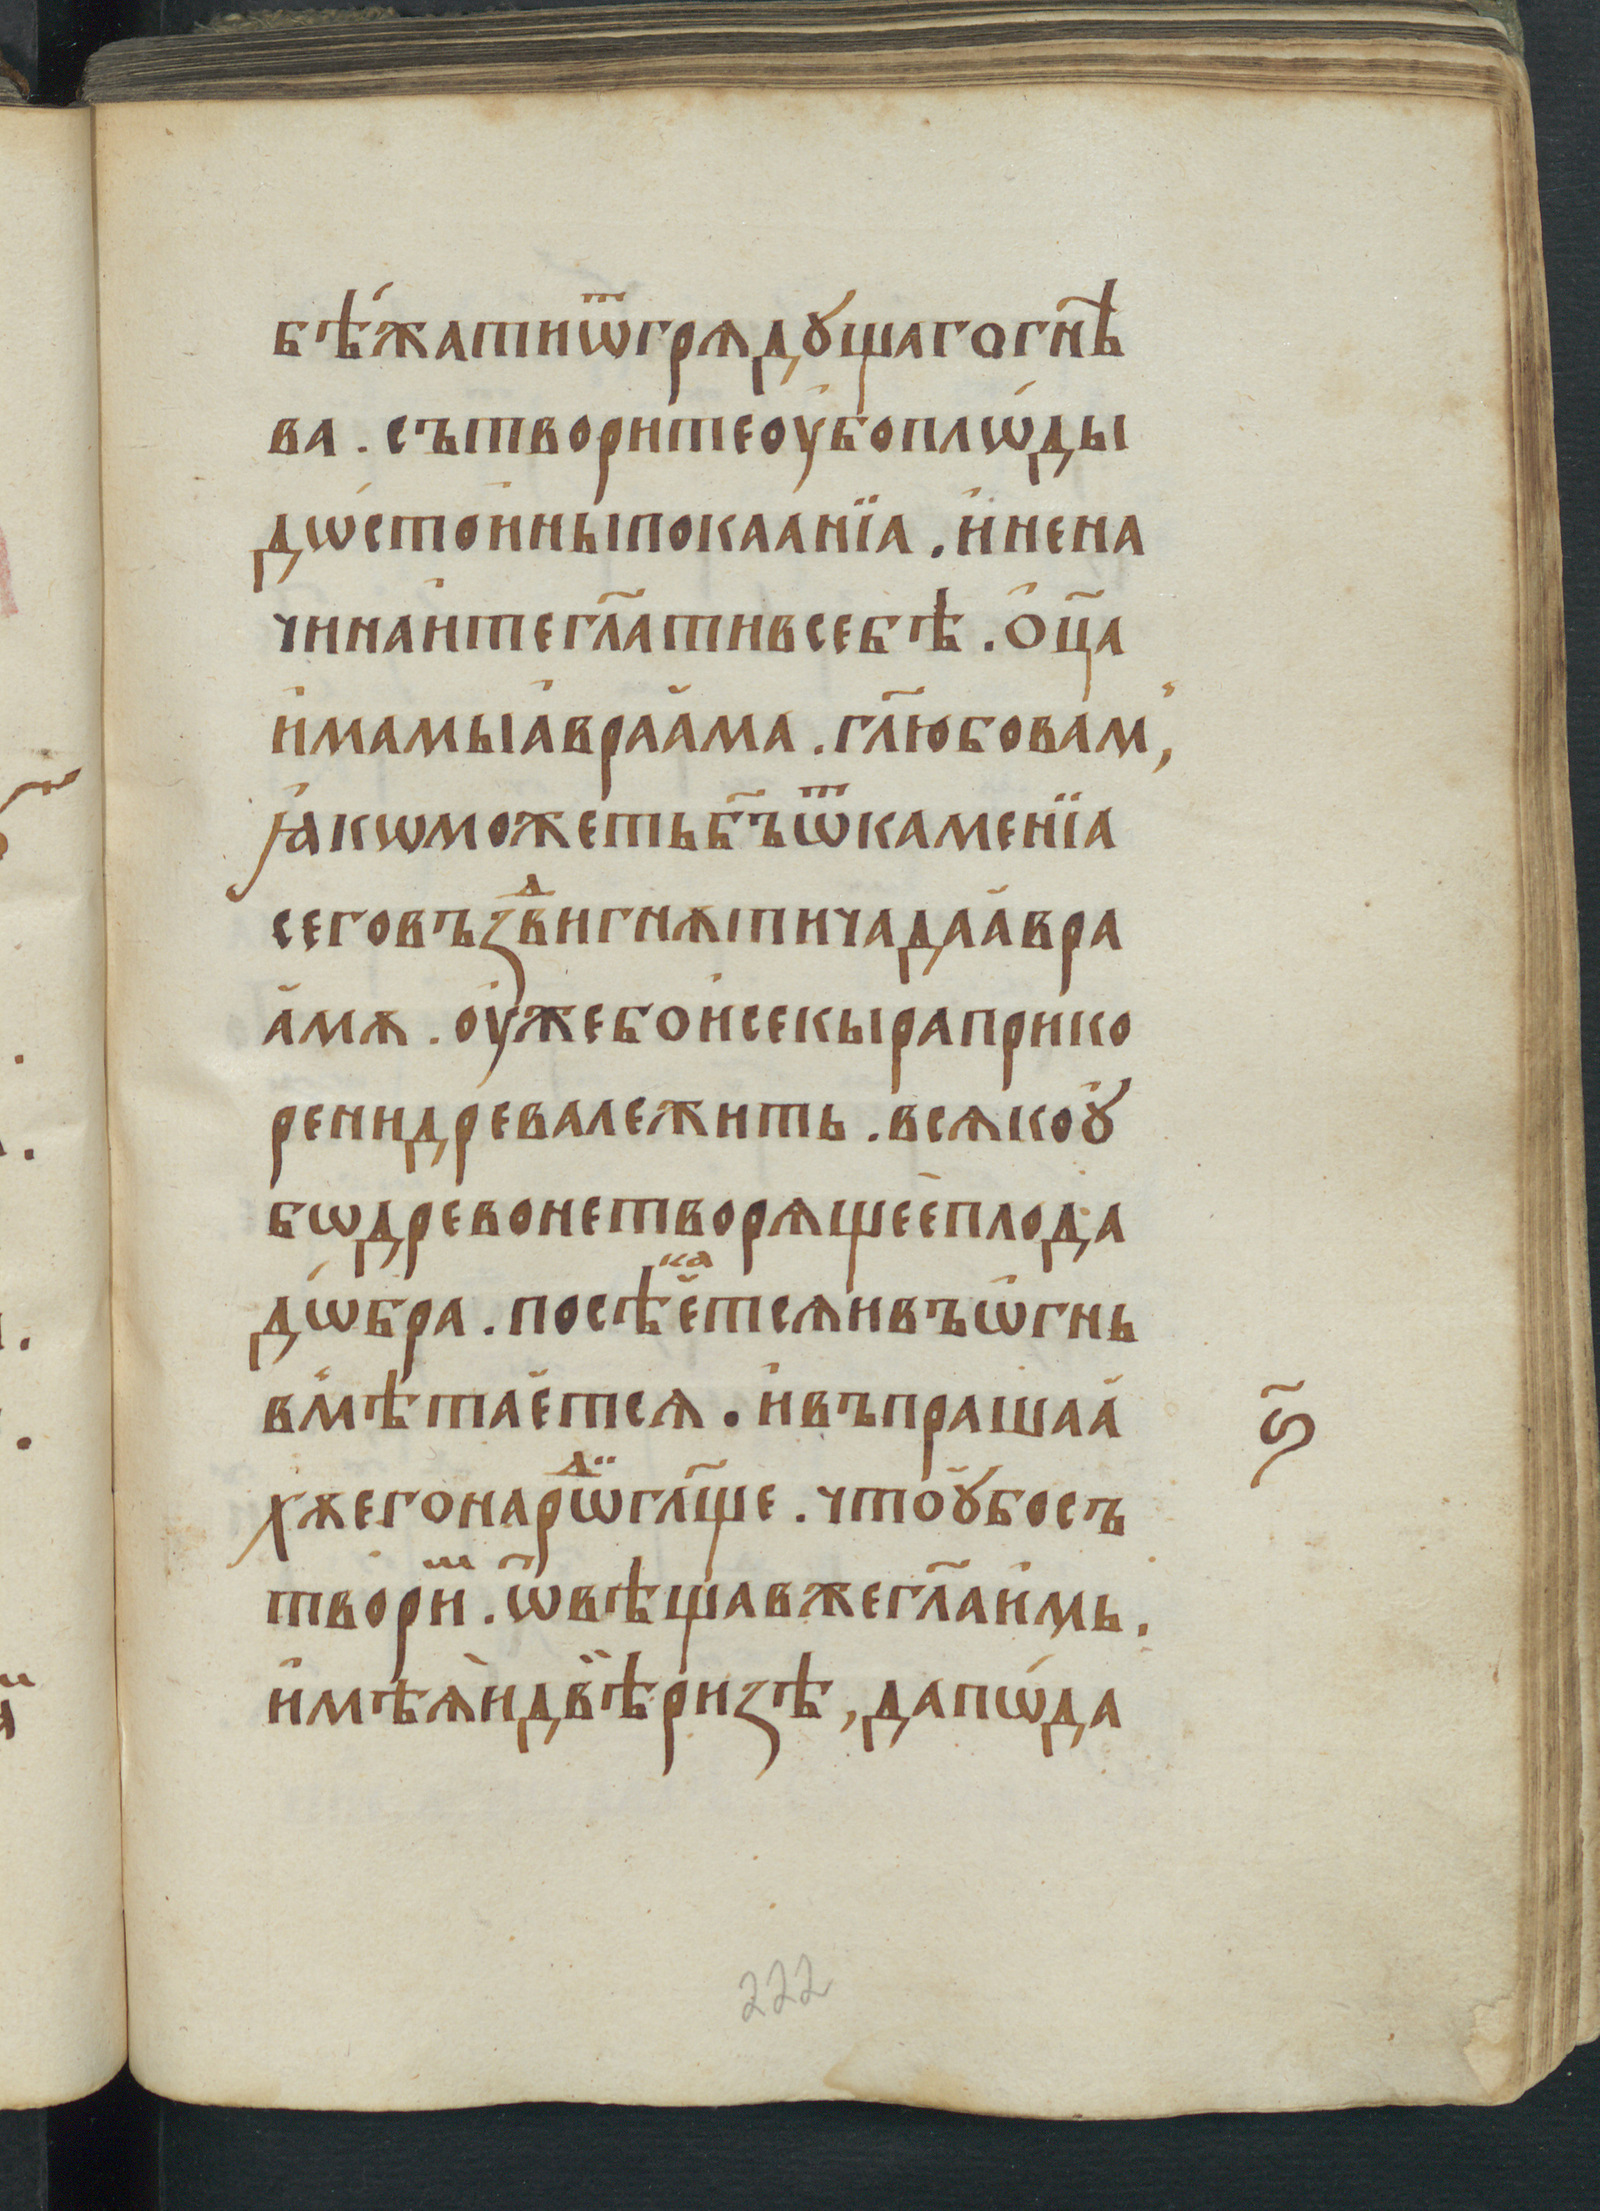 бѣжатиѿгрѧдꙋщагогнѣ
ва. сътворитеоубоплѡды
дѡстойныпокаанїа. и҆нена
чинаитегл҃ативсебѣ. ѻ҆ц҃а
и҆мамыа҆враа҆ма. гл҃юбовам,
ꙗ҆кѡможетьб҃ъѿкаменїа
сеговъздⷣвигнѫтичадаа҆вра
а҆мѫ. оужебоисекыраприко
рениидревалежить. всѧкоꙋ
бѡдревонетворѧщеепл​ода
дѡбра. посѣкаетсѧивъѡ҆гнь
вмѣтаетсѧ. и҆въпрашаа
хѫегонарѡⷣигл҃ще. чтоꙋбосъ
творⷨи. ѿвѣщавжегл҃аи҆мь.
и҆мѣѧидвѣризѣ, дапѡда
ѕ҃
222